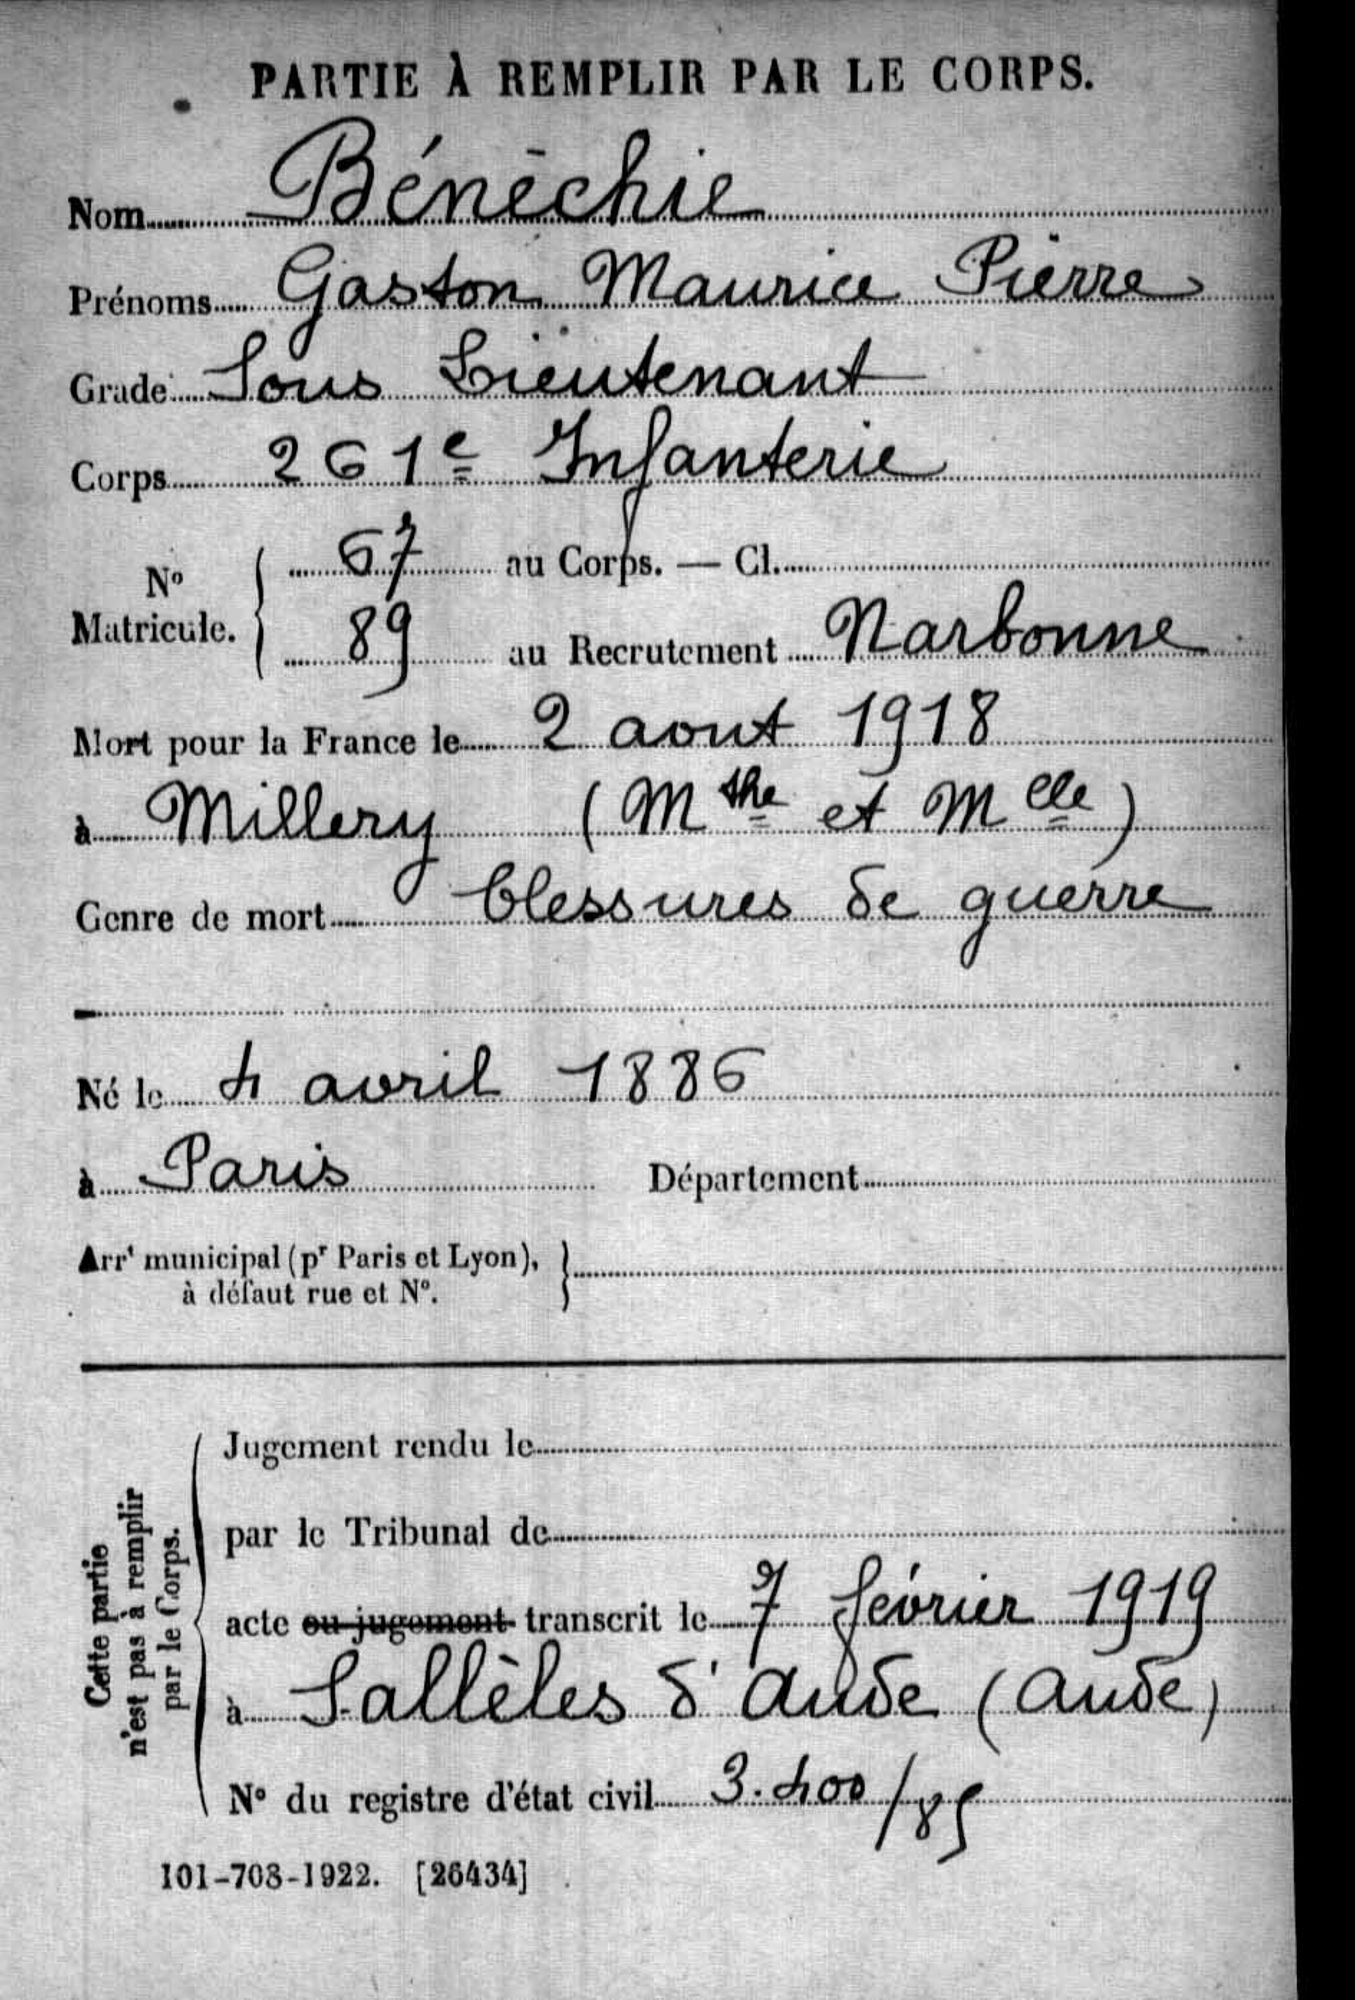 PARTIE À REMPLIR PAR LE CORPS.
Nom Bénéchie
Prénoms Gaston Maurice Pierre
Grade Sous Lieutenant
Corps 261e Infanterie
No Matricule. 67 au Corps. — Cl.
89 au Recrutement Narbonne
Mort pour la France le 2 aout 1918
à Millery (Mthe et Mlle)
Genre de mort blessures de guerre
Né le 4 avril 1886
à Paris Département
Arrt municipal (pr Paris et Lyon),
à défaut rue et N°.
Cette partie
n'est pas à remplir
par le Corps.
Jugement rendu le
par le Tribunal de
acte ou jugement transcrit le 7 février 1919
à Sallèles d'aude (aude)
N° du registre d'état civil 3.400/85
101-708-1922. [26434]